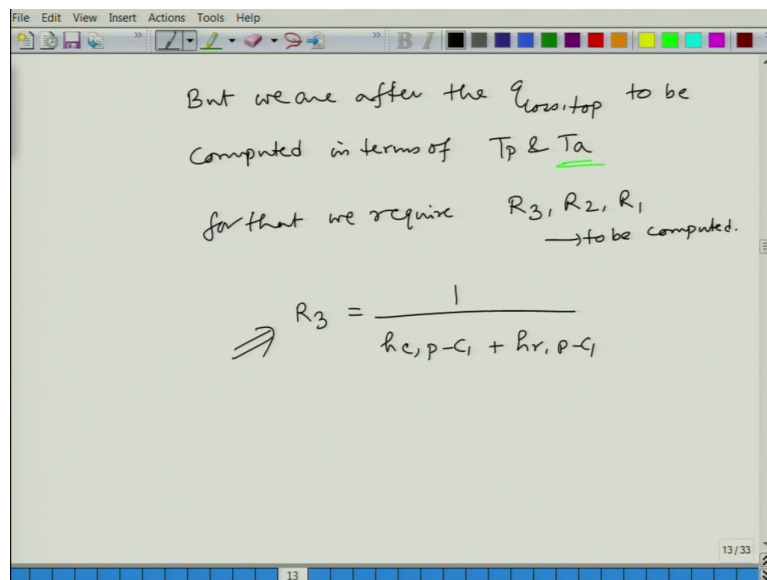 File Edit View Insert Actions Tools Help
But we are after the q_loss,top to be
computed in terms of Tp & Ta
for that we require R3, R2, R1
→ to be computed.
⇒ R3 = 1 / (hc,p-c1 + hr,p-c1)
13/33
13